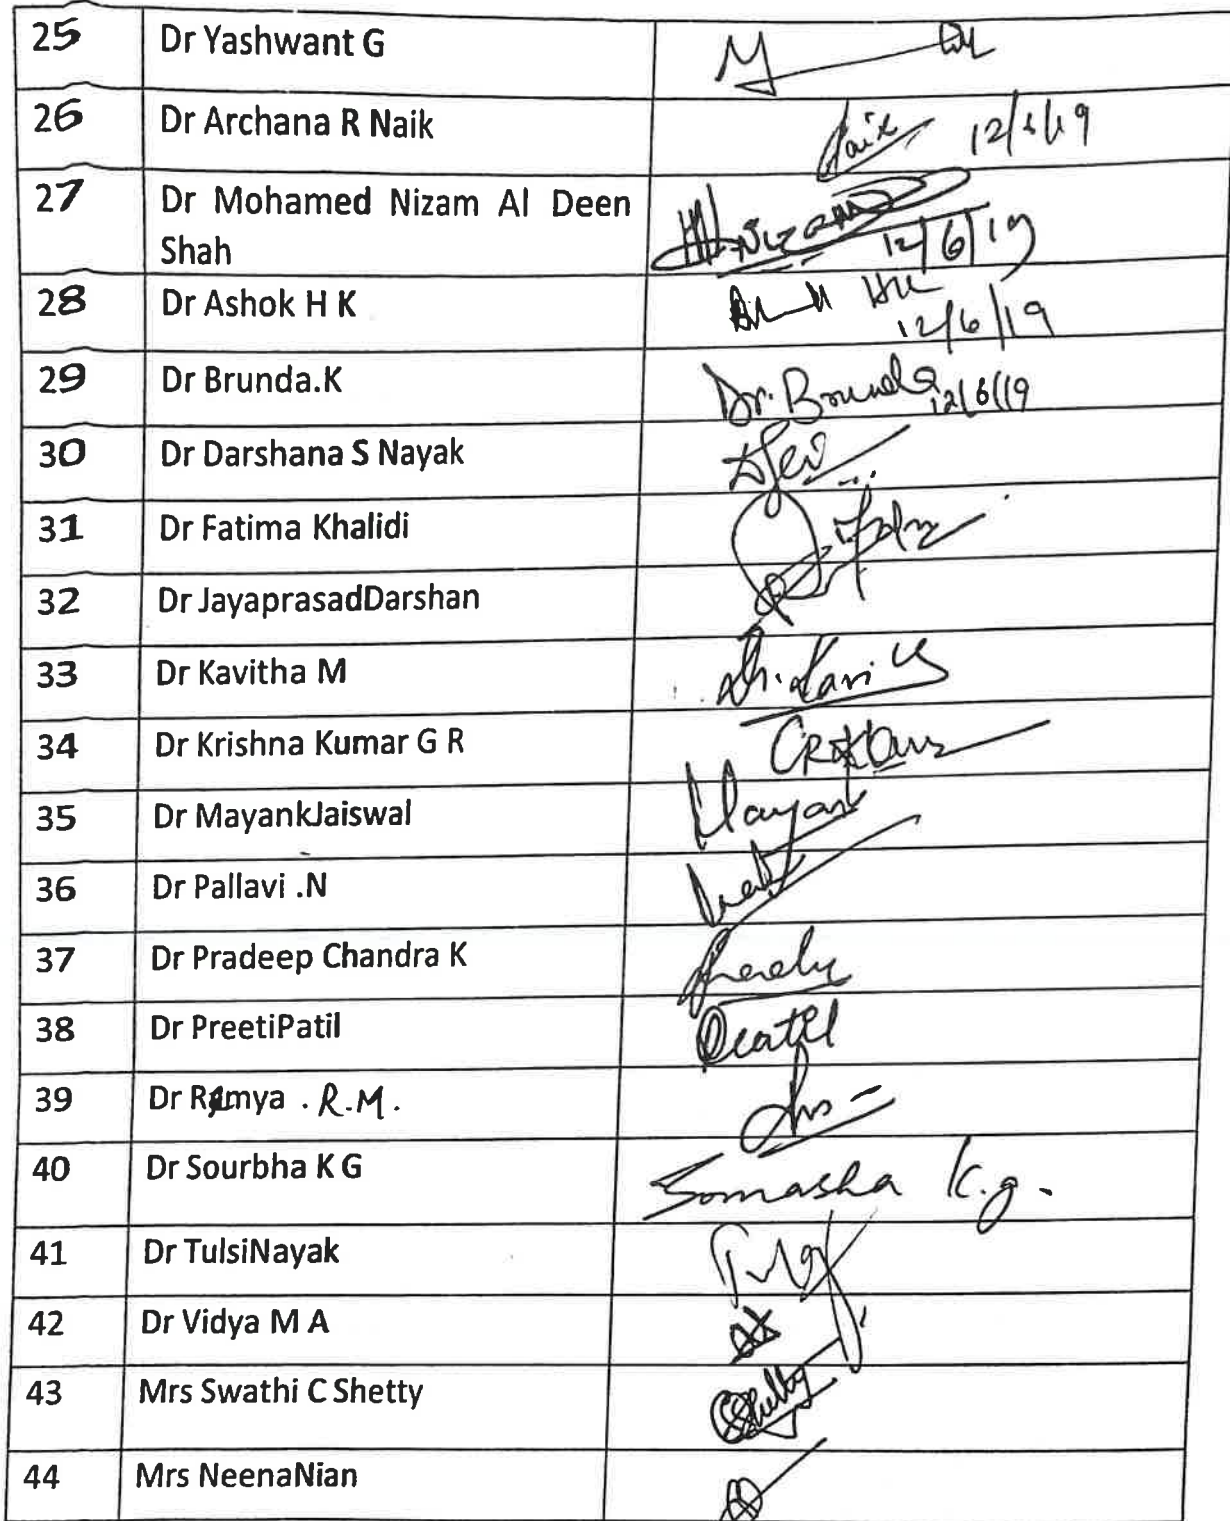 25 Dr Yashwant G
26 Dr Archana R Naik Naik 12/6/19
27 Dr Mohamed Nizam Al Deen
Shah Nizam 12/6/19
28 Dr Ashok H K HK
12/6/19
29 Dr Brunda.K Dr. Brunda 12/6/19
30 Dr Darshana S Nayak
31 Dr Fatima Khalidi
32 Dr JayaprasadDarshan
33 Dr Kavitha M Dr. Kavi
34 Dr Krishna Kumar G R
35 Dr MayankJaiswal Mayank
36 Dr Pallavi .N
37 Dr Pradeep Chandra K
38 Dr PreetiPatil
39 Dr Ramya . R.M.
40 Dr Sourbha K G K.g.
41 Dr TulsiNayak
42 Dr Vidya M A
43 Mrs Swathi C Shetty CShetty
44 Mrs NeenaNian